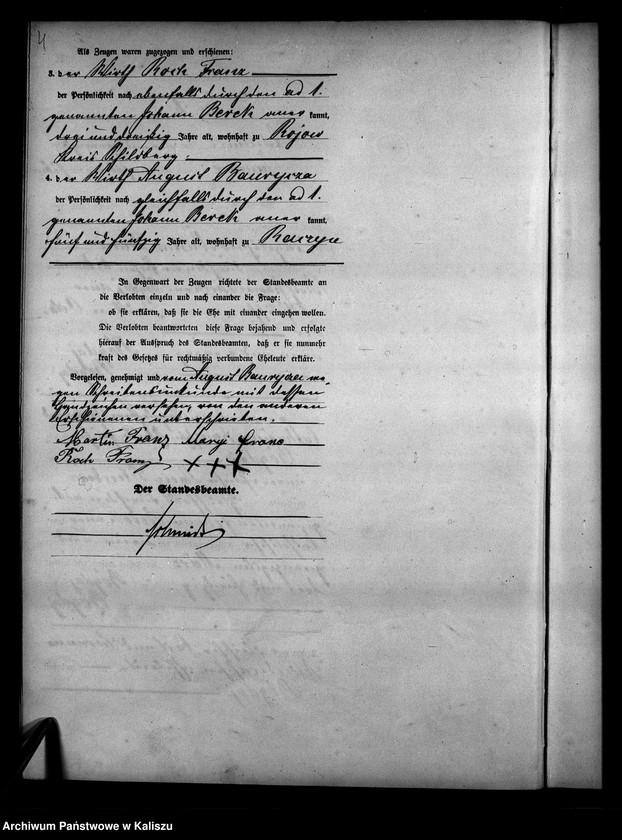 4
Als Zeugen waren zugezogen und erschienen:
3. der Wirth Roch Franz
der Persönlichkeit nach ebenfalls durch den ad 1.
genannten Johann Berek aner kannt,
drei und dreißig Jahre alt, wohnhaft zu Rojow
Kreis Schildberg.
4. der Wirth August
der Persönlichkeit nach gleichfalls durch den ad 1.
genannten Johann Berek aner kannt,
fünf und fünfzig Jahre alt, wohnhaft zu
In Gegenwart der Zeugen richtete der Standesbeamte an
die Verlobten einzeln und nach einander die Frage:
ob sie erklären, daß sie die Ehe mit einander eingehen wollen.
Die Verlobten beantworteten diese Frage bejahend und erfolgte
hierauf der Ausspruch des Standesbeamten, daß er sie nunmehr
kraft des Gesetzes für rechtmäßig verbundene Eheleute erkläre.
Vorgelesen, genehmigt und vom August we-
gen Schreibensunkunde mit dessen
Handzeichen versehen, von den anderen
Erschienenen unterschrieben.
Martin Franz Maryi Franc
Roch Franz } +++
Der Standesbeamte.
Schmidt
Archiwum Państwowe w Kaliszu